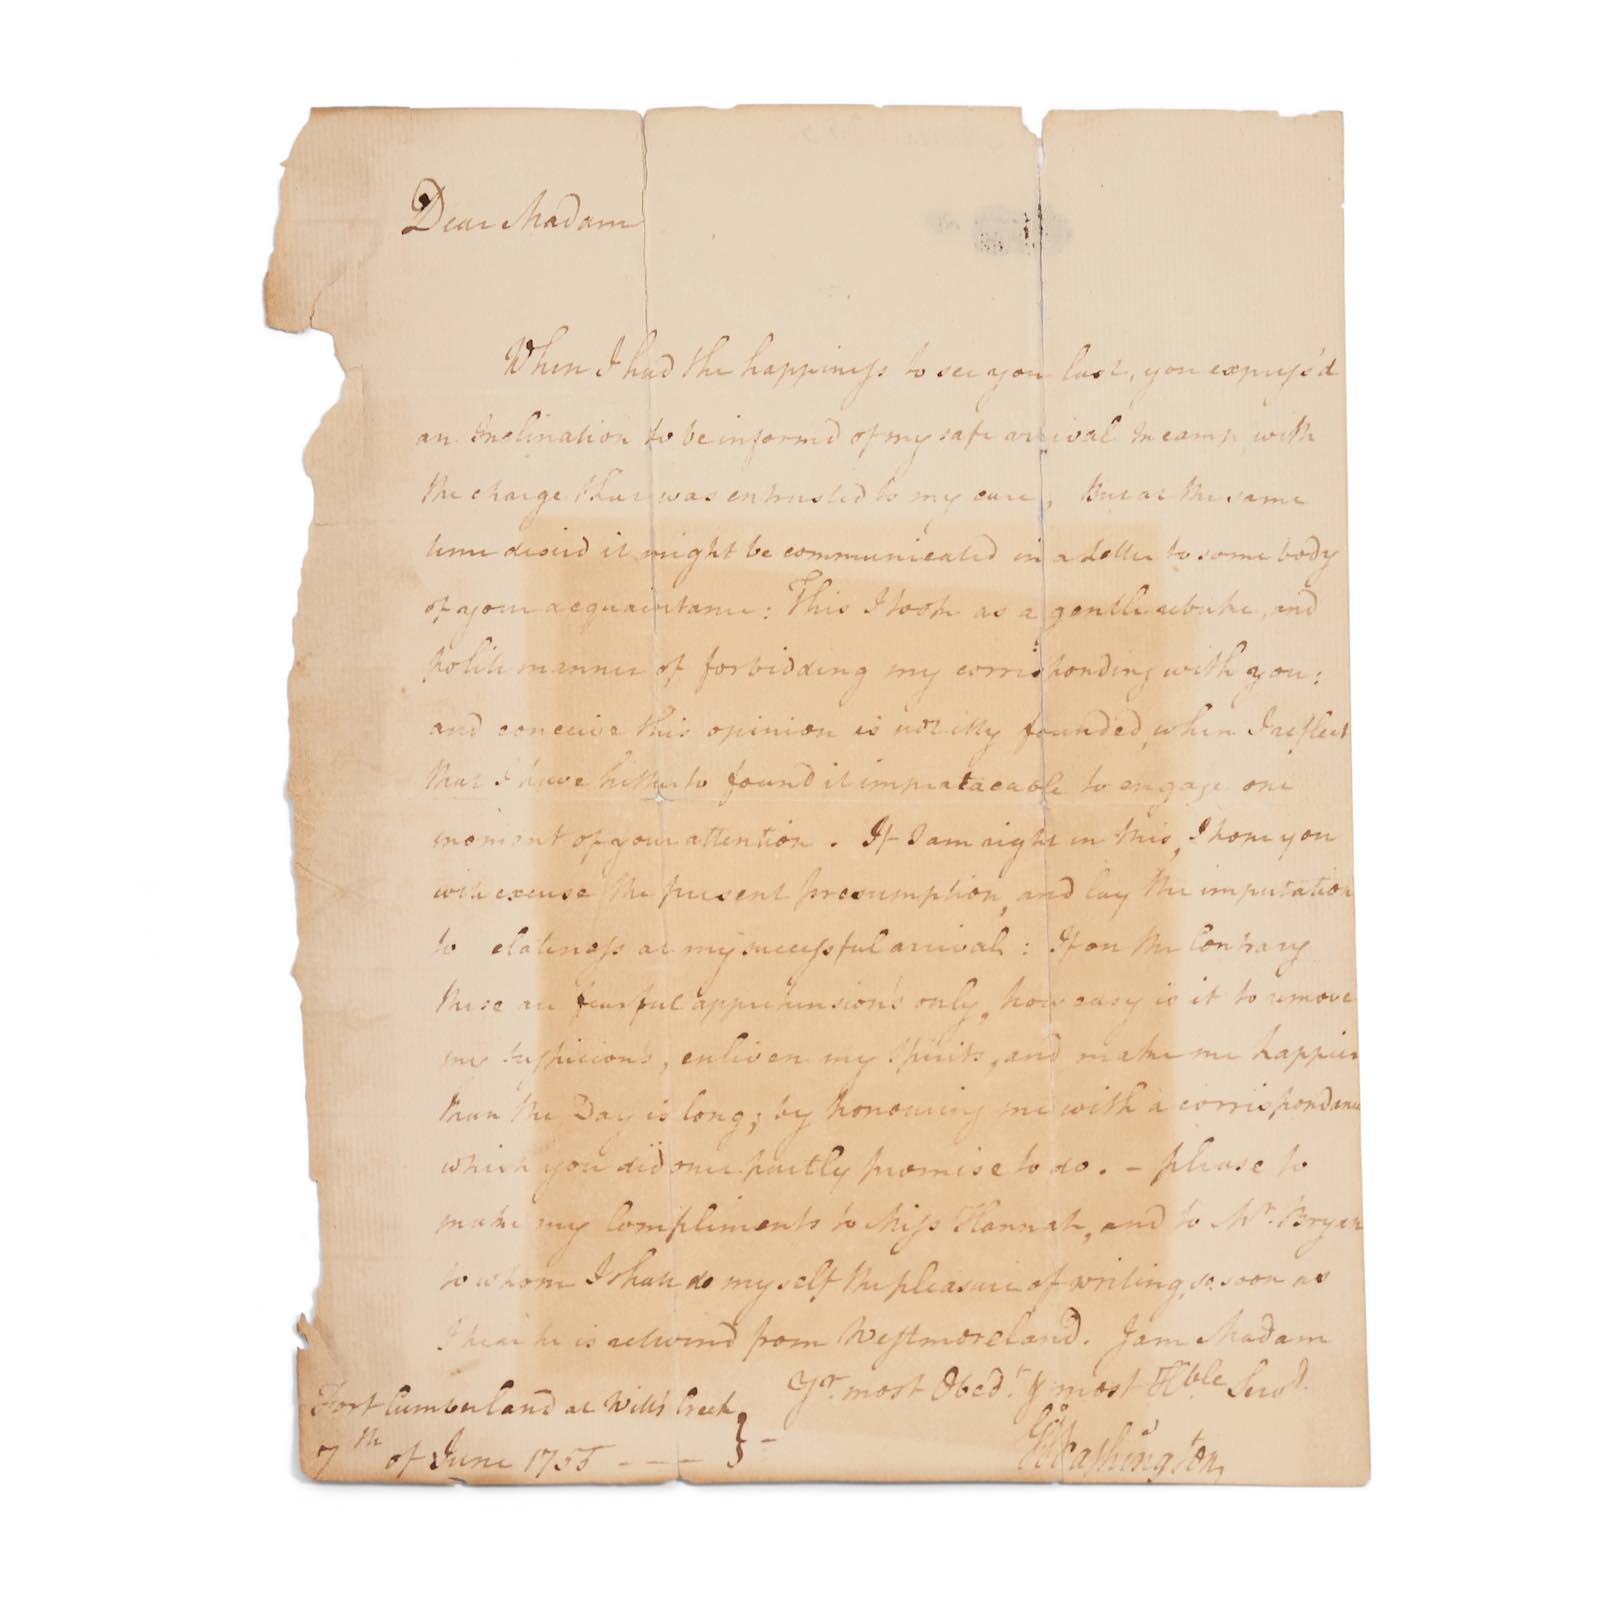 Dear Madam
When I had the happiness to see you last, you express'd
an Inclination to be inform'd of my safe arrival in camp with
the charge that was entrusted to my care, But at the same
time desird it might be communicated in a letter to some body
of your acquaintance: This I took as a gentle rebuke, and
polite manner of forbidding my corrisponding with you:
and conceive this opinion is not illy founded, when I reflect
that I have hitherto found it impratacable to engage one
moment of your attention. If I am right in this, I hope you
will excuse the present presumption, and lay the imputation
to elateness at my successful arrival: If on the Contrary
these are fearful apprehension's only, how easy is it to remove
my suspicion's, enliven my Spirits, and make me happier
than the Day is long; by honouring me with a corrispondence
which you did once partly promise to do. – please to
make my Compliments to Miss Hannah, and to Mr. Bryan
to whom I shall do myself the pleasure of writing so soon as
I hear he is returnd from Westmoreland. I am Madam
Yr. most Obedt. & most Hble Servt.
Go Washington
Fort Cumberland at Will's Creek
7th of June 1755 ---- } -